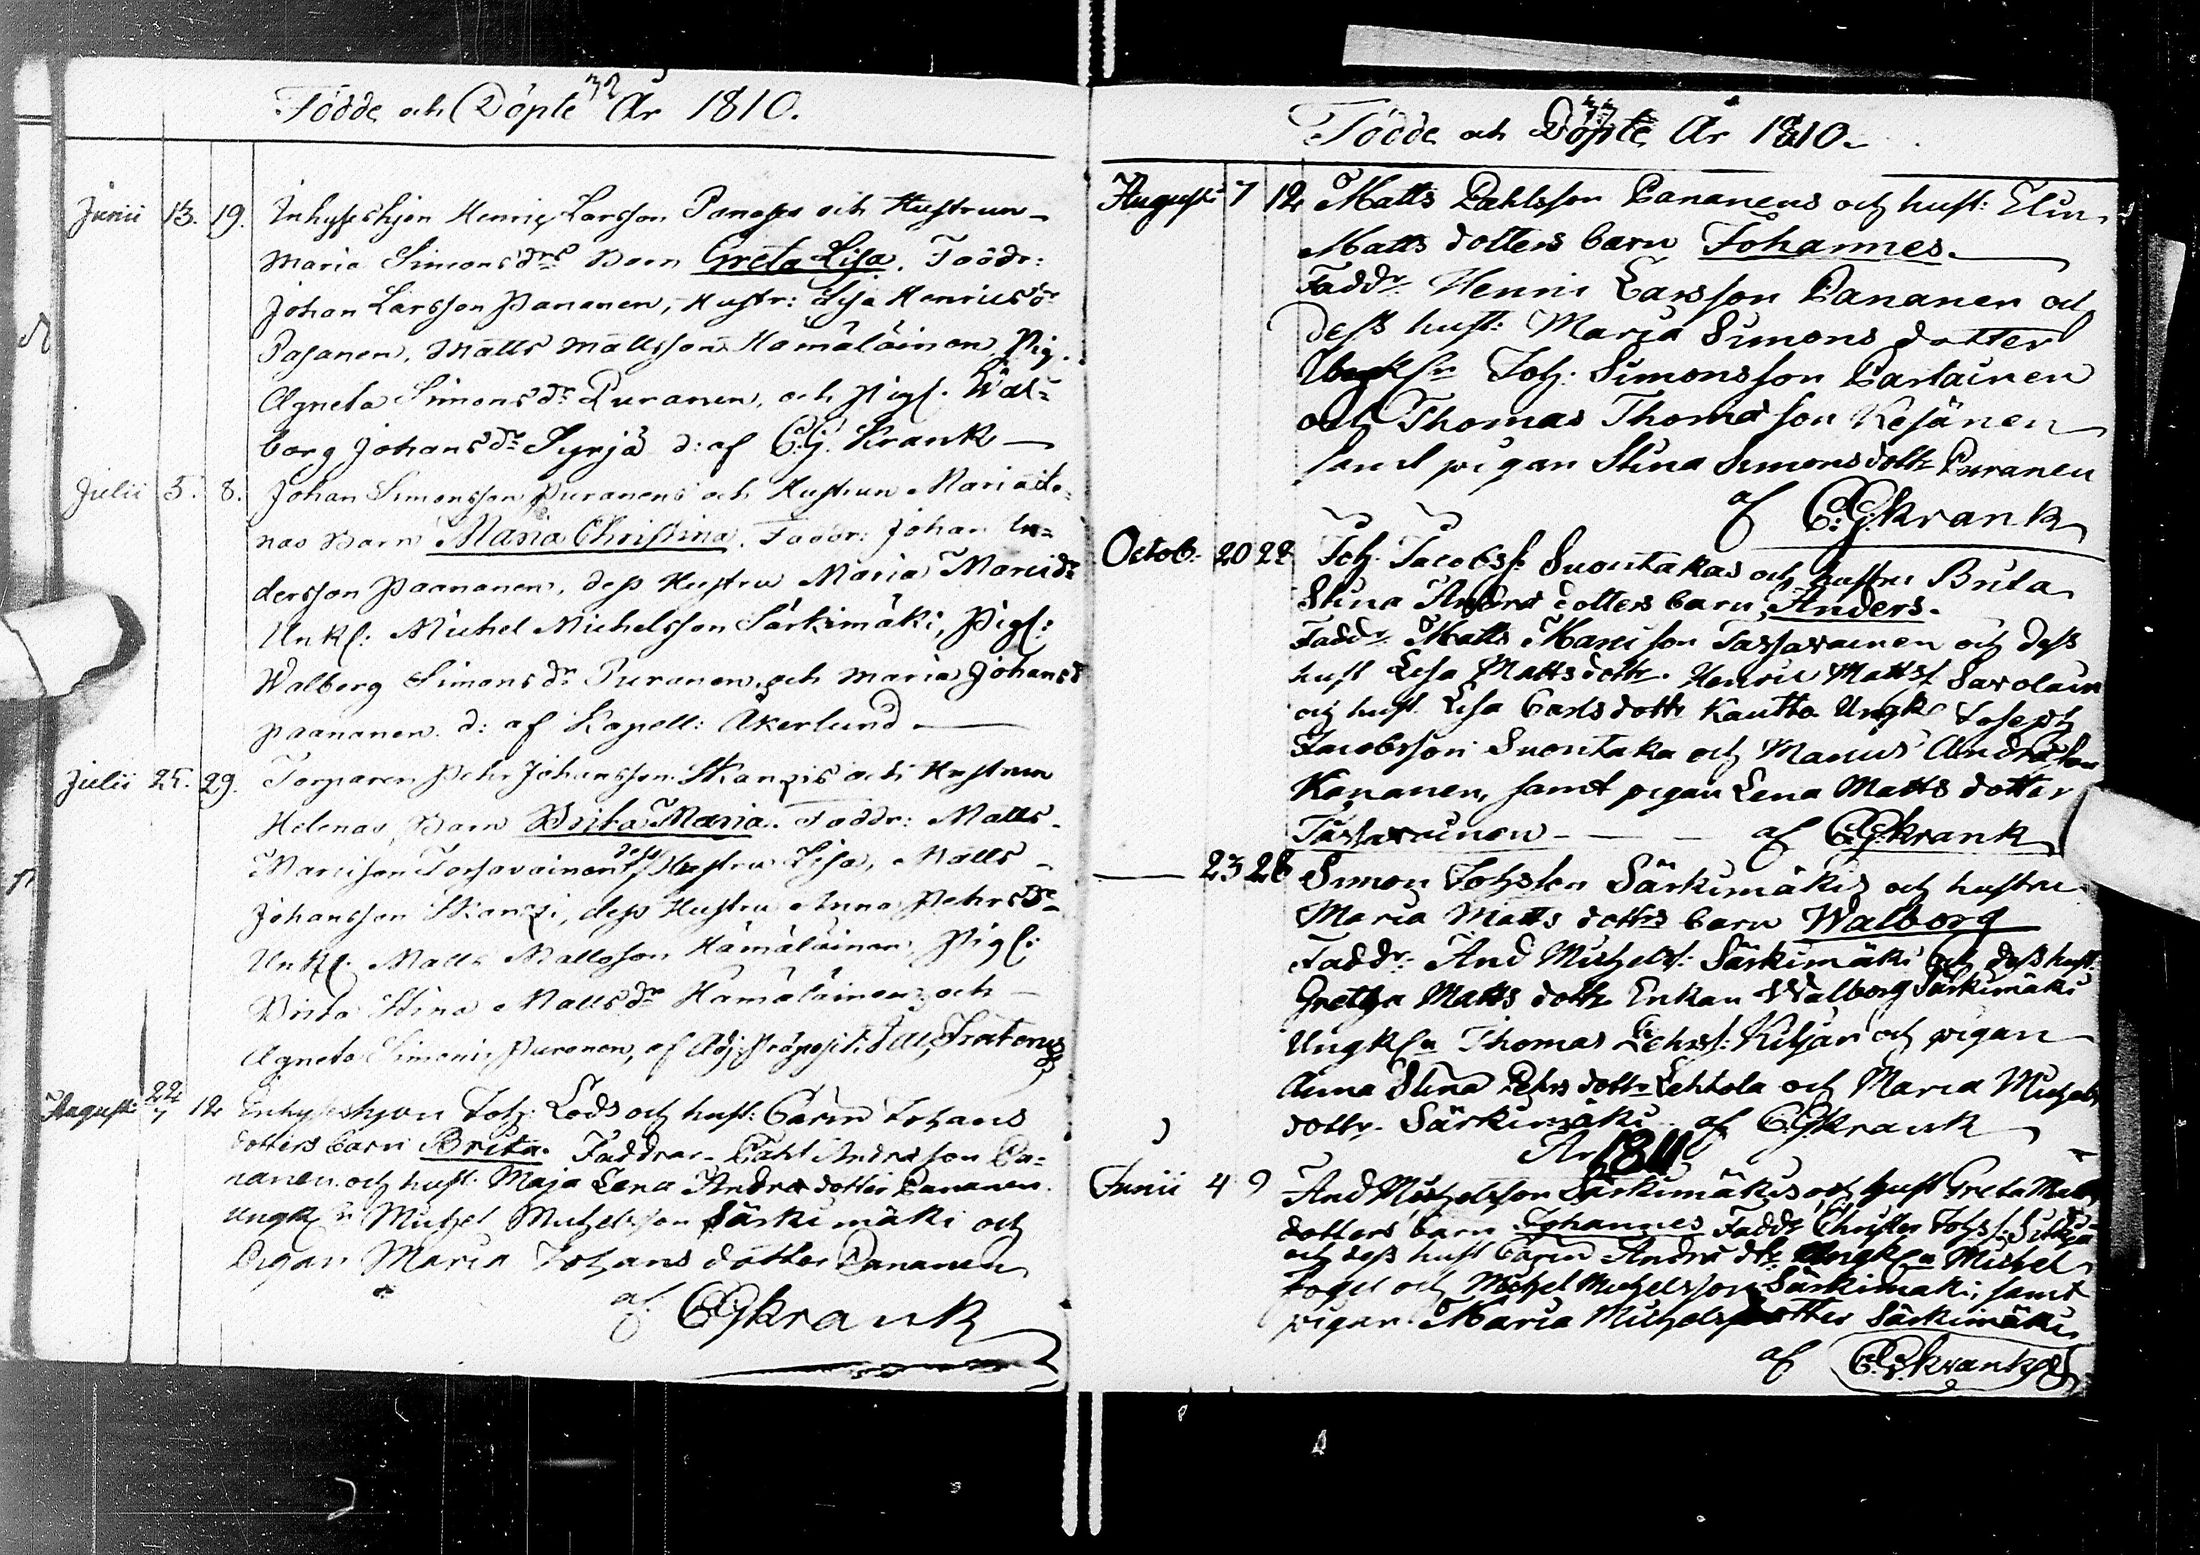 32
Födde och Döpte År 1810.
Junii 13. 19. Inhyseshjon Henric Larsson Panases och Hustrun
Maria Simonsdrs Barn Greta Lisa. Faddr:
Johan Larsson Pananen, Hustr: Lisa Henricsdr
Pasanen, Matts Mattsson Hämäläinen, Pig.
Agneta Simonsdr Puranen, och Pigs. Wal=
borg Johansdr Syrjä d: af C.G. Krank
Julii 5. 8. Johan Simonsson Puranens och Hustrun Maria
nas Barn Maria Christina. Faddr: Johan An=
dersson Paananen, dess Hustru Maria Marcidr
Unkl: Michel Michelsson Särkimäki, Pigs:
Walborg Simonsdr Puranen, och Maria Johansd
Paananen. d: af Kapell: Åkerlund
Julii 25. 29. Torparen Pehr Johansson Kanzis och Hustrun
Helenas Barn Brita Maria. Faddr: Matts
Marcison Tarsavainen, dess Hustru Lisa, Matts
Johansson Kanzi, dess Hustru Anna Pehrsdr
Unkl: Matts Mattsson Hämäläinen, Pigs:
Brita Stina Mattsdr Hämäläinen och
Agneta Simonsdr Puranen, af Adj: Præposit:
August: 22 7 12 Inhyseshjon Joh: Lods och hust: Carin Johans
dotters barn Brita. Faddrar Påhl Andersson Pa=
nanen och hust: Maja Lena Anders dotter Pananen
Ungksn Michel Michelsson Särkimäki och
Pigan Maria Johans dotter Pananen
af C.G. Krank
33
Födde och Döpte År 1810.
August: 7 12 Matts Pahlsson Pananens och hust: Elin
Matts dotters barn Johannes.
Faddr: Henric Larsson Pananen och
dess hust: Maria Simons dotter
Ungksn Joh: Simonsson Partainen
och Thomas Thomasson Kesänen
samt pigan Stina Simonsdottr Puranen
af C.G. Krank
Octob: 20 22 Joh. Jacobss: Suontakas och hustru Brita
Stina Anders dotters barn Anders.
Faddr: Matts Marcison Tarsavainen och dess
hust Lisa Mattsdottr. Henric Mattss Savolain
och hust. Lisa Carlsdottr Kautto Ungk Joseph
Jacobsson Suontaka och Marcus Andersson
Kananen, samt pigan Lena Matts dotter
Tarsavainen af C.G. Krank
23 28 Simon Johsson Särkimäkis och hustru
Maria Matts dottrs barn Walborg
Faddr: And Michelss: Särkimäki och dess hust:
Gretha Matts dottr Enkan Walborg Särkimäki
Ungksn Thomas Pehrss: Kiljari och pigan
Anna Stina Pehrs dottr Lehtola och Maria Michels
dottr. Särkimäki af C.G. Krank
År 1811
Junii 4 9 And Michelsson Särkimäkis och hust Greta Matts
dotters barn Johannes Faddr Christer Johss:
och dess hust Carin Anders dtr Ungksn Michel
Fogel och Michel Michelsson Särkimäki, samt
pigan Maria Michelsdotter Särkimäki
af C.G. Krank